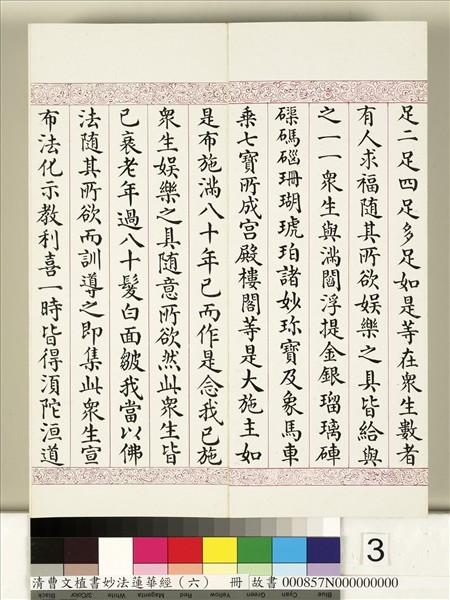 足二足四足多足如是等在衆生數者
有人求福隨其所欲娛樂之具皆給與
之一一衆生與滿閻浮提金銀瑠璃硨
磲碼碯珊瑚琥珀諸妙珎寶及象馬車
乘七寶所成宮殿樓閣等是大施主如
是布施滿八十年已而作是念我已施
衆生娛樂之具隨意所欲然此衆生皆
已衰老年過八十髮白面皺我當以佛
法隨其所欲而訓導之即集此衆生宣
布法化示教利喜一時皆得湏陀洹道
3
清曹文植書妙法蓮華經（六） 冊 故書 000857N000000000
Black
3/Color
White
Magenta
Red
Yellow
Green
Cyan
Blue